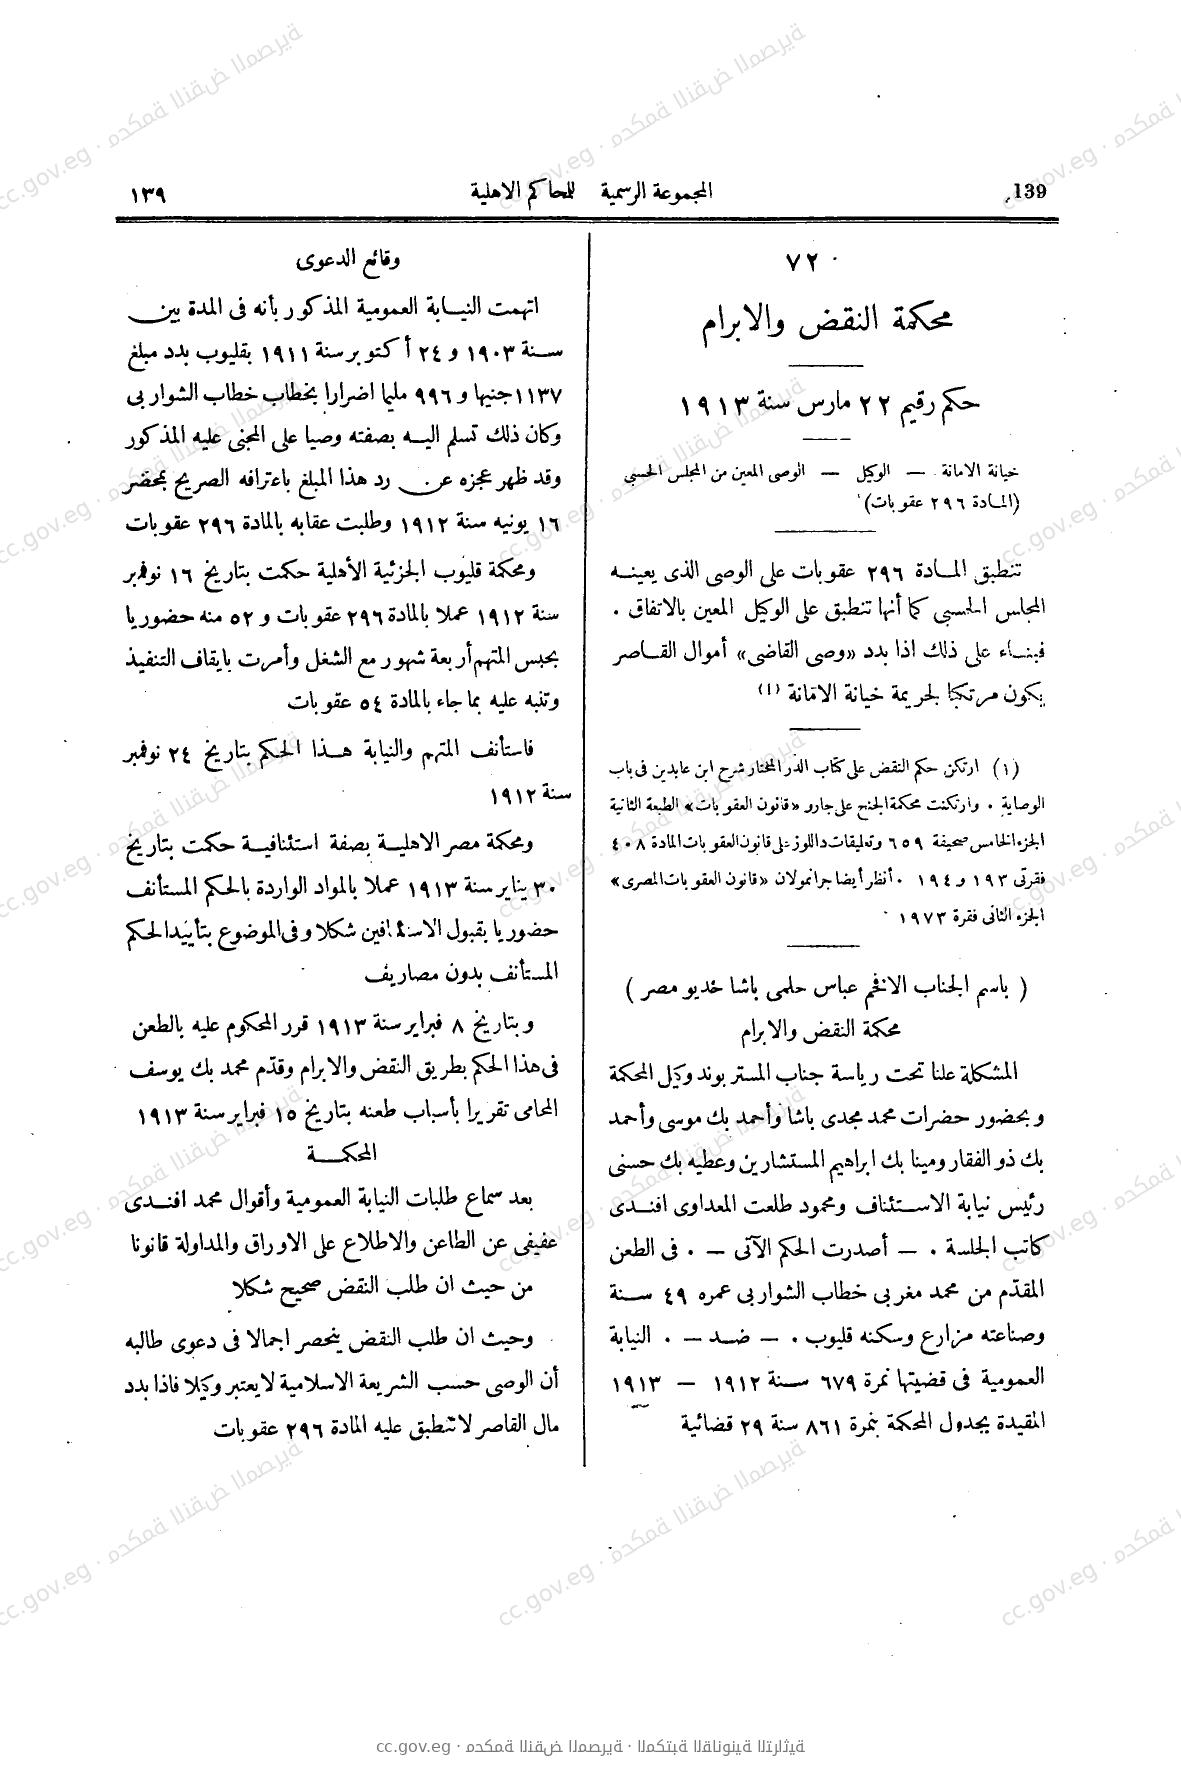 139
المجموعة الرسمية للمحاكم الاهلية
١٣٩
٧٢
محكمة النقض والابرام
حكم رقيم ٢٢ مارس سنة ١٩١٣
خيانة الامانة — الوكيل — الوصى المعين من المجلس الحسبى
(المادة ٢٩٦ عقوبات)
تنطبق المادة ٢٩٦ عقوبات على الوصى الذى يعينه
المجلس الحسبى كما أنها تنطبق على الوكيل المعين بالاتفاق .
فبناء على ذلك اذا بدد «وصى القاضى» أموال القاصر
يكون مرتكبا لجريمة خيانة الامانة (١)
(١) ارتكن حكم النقض على كتاب الدر المختار شرح ابن عابدين فى باب
الوصاية . وارتكنت محكمة الجنح على جارو «قانون العقوبات» الطبعة الثانية
الجزء الخامس صحيفة ٦٥٩ وتعليقات داللوز على قانون العقوبات المادة ٤٠٨
فقرتى ١٩٣ و ١٩٤ . أنظر أيضا جرانمولان «قانون العقوبات المصرى»
الجزء الثانى فقرة ١٩٧٣
( باسم الجناب الافخم عباس حلمى باشا خديو مصر )
محكمة النقض والابرام
المشكلة علنا تحت رياسة جناب المستر بوند وكيل المحكمة
وبحضور حضرات محمد مجدى باشا وأحمد بك موسى وأحمد
بك ذو الفقار ومينا بك ابراهيم المستشارين وعطيه بك حسنى
رئيس نيابة الاستئناف ومحمود طلعت المعداوى افندى
كاتب الجلسة . — أصدرت الحكم الآتى — . فى الطعن
المقدّم من محمد مغربى خطاب الشواربى عمره ٤٩ سنة
وصناعته مزارع وسكنه قليوب . — ضد — . النيابة
العمومية فى قضيتها نمرة ٦٧٩ سنة ١٩١٢ — ١٩١٣
المقيدة بجدول المحكمة بنمرة ٨٦١ سنة ٢٩ قضائية
وقائع الدعوى
اتهمت النيابة العمومية المذكور بأنه فى المدة بين
سنة ١٩٠٣ و ٢٤ أكتوبر سنة ١٩١١ بقليوب بدد مبلغ
١١٣٧ جنيها و ٩٩٦ مليما اضرارا بخطاب خطاب الشواربى
وكان ذلك تسلم اليه بصفته وصيا على المجنى عليه المذكور
وقد ظهر عجزه عن رد هذا المبلغ باعترافه الصريح بمحضر
١٦ يونيه سنة ١٩١٢ وطلبت عقابه بالمادة ٢٩٦ عقوبات
ومحكمة قليوب الجزئية الأهلية حكمت بتاريخ ١٦ نوفمبر
سنة ١٩١٢ عملا بالمادة ٢٩٦ عقوبات و ٥٢ منه حضوريا
بحبس المتهم أربعة شهور مع الشغل وأمرت بايقاف التنفيذ
وتنبه عليه بما جاء بالمادة ٥٤ عقوبات
فاستأنف المتهم والنيابة هذا الحكم بتاريخ ٢٤ نوفمبر
سنة ١٩١٢
ومحكمة مصر الاهلية بصفة استئنافية حكمت بتاريخ
٣٠ يناير سنة ١٩١٣ عملا بالمواد الواردة بالحكم المستأنف
حضوريا بقبول الاستئنافين شكلا وفى الموضوع بتأييد الحكم
المستأنف بدون مصاريف
وبتاريخ ٨ فبراير سنة ١٩١٣ قرر المحكوم عليه بالطعن
فى هذا الحكم بطريق النقض والابرام وقدّم محمد بك يوسف
المحامى تقريرا بأسباب طعنه بتاريخ ١٥ فبراير سنة ١٩١٣
المحكمة
بعد سماع طلبات النيابة العمومية وأقوال محمد افندى
عفيفى عن الطاعن والاطلاع على الاوراق والمداولة قانونا
من حيث ان طلب النقض صحيح شكلا
وحيث ان طلب النقض ينحصر اجمالا فى دعوى طالبه
أن الوصى حسب الشريعة الاسلامية لا يعتبر وكيلا فاذا بدد
مال القاصر لا تنطبق عليه المادة ٢٩٦ عقوبات
cc.gov.eg · محكمة النقض المصرية · المكتبة القانونية التراثية